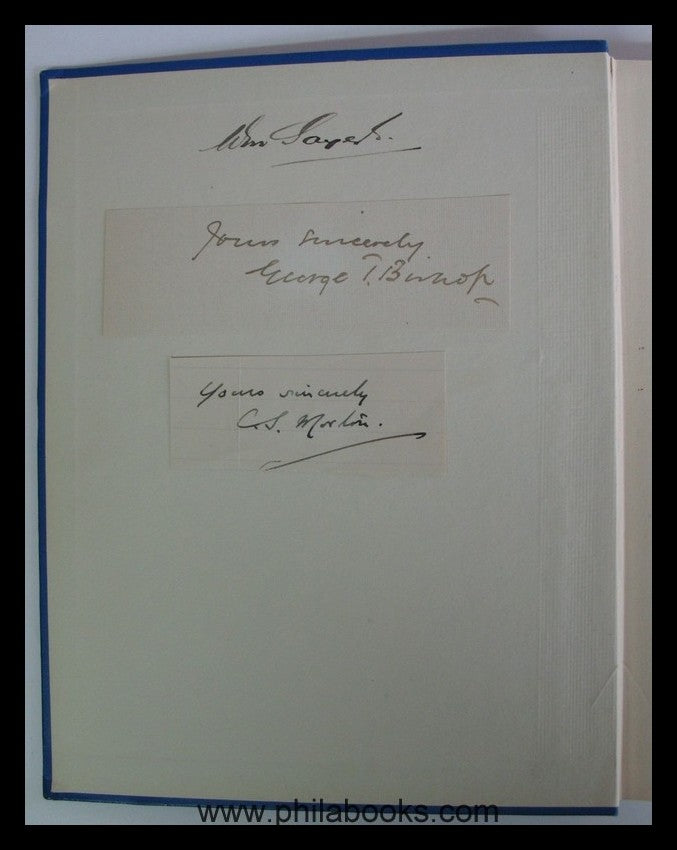 Wm
Yours sincerely
George T. Bishop
Yours sincerely
C. S. Morton.
www.philabooks.com